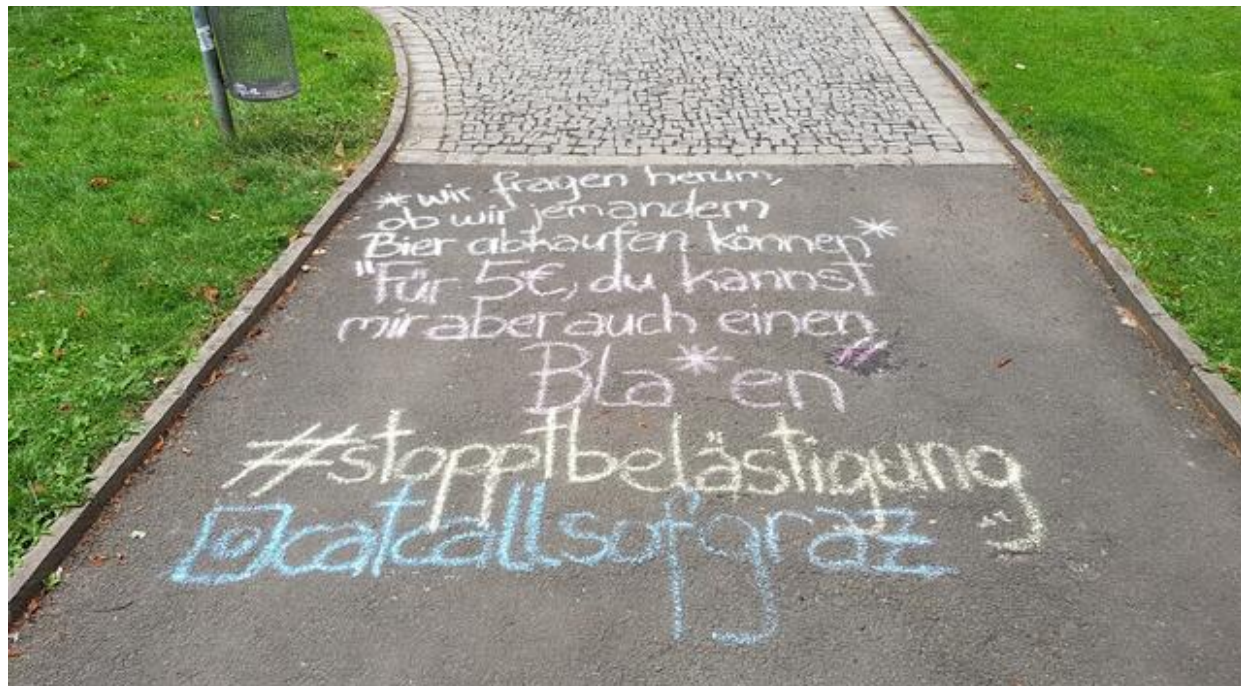 *wir fragen herum,
ob wir jemandem
Bier abkaufen können*
"Für 5€, du kannst
mir aber auch einen
Bla*en"
#stopptbelästigung
catcallsofgraz